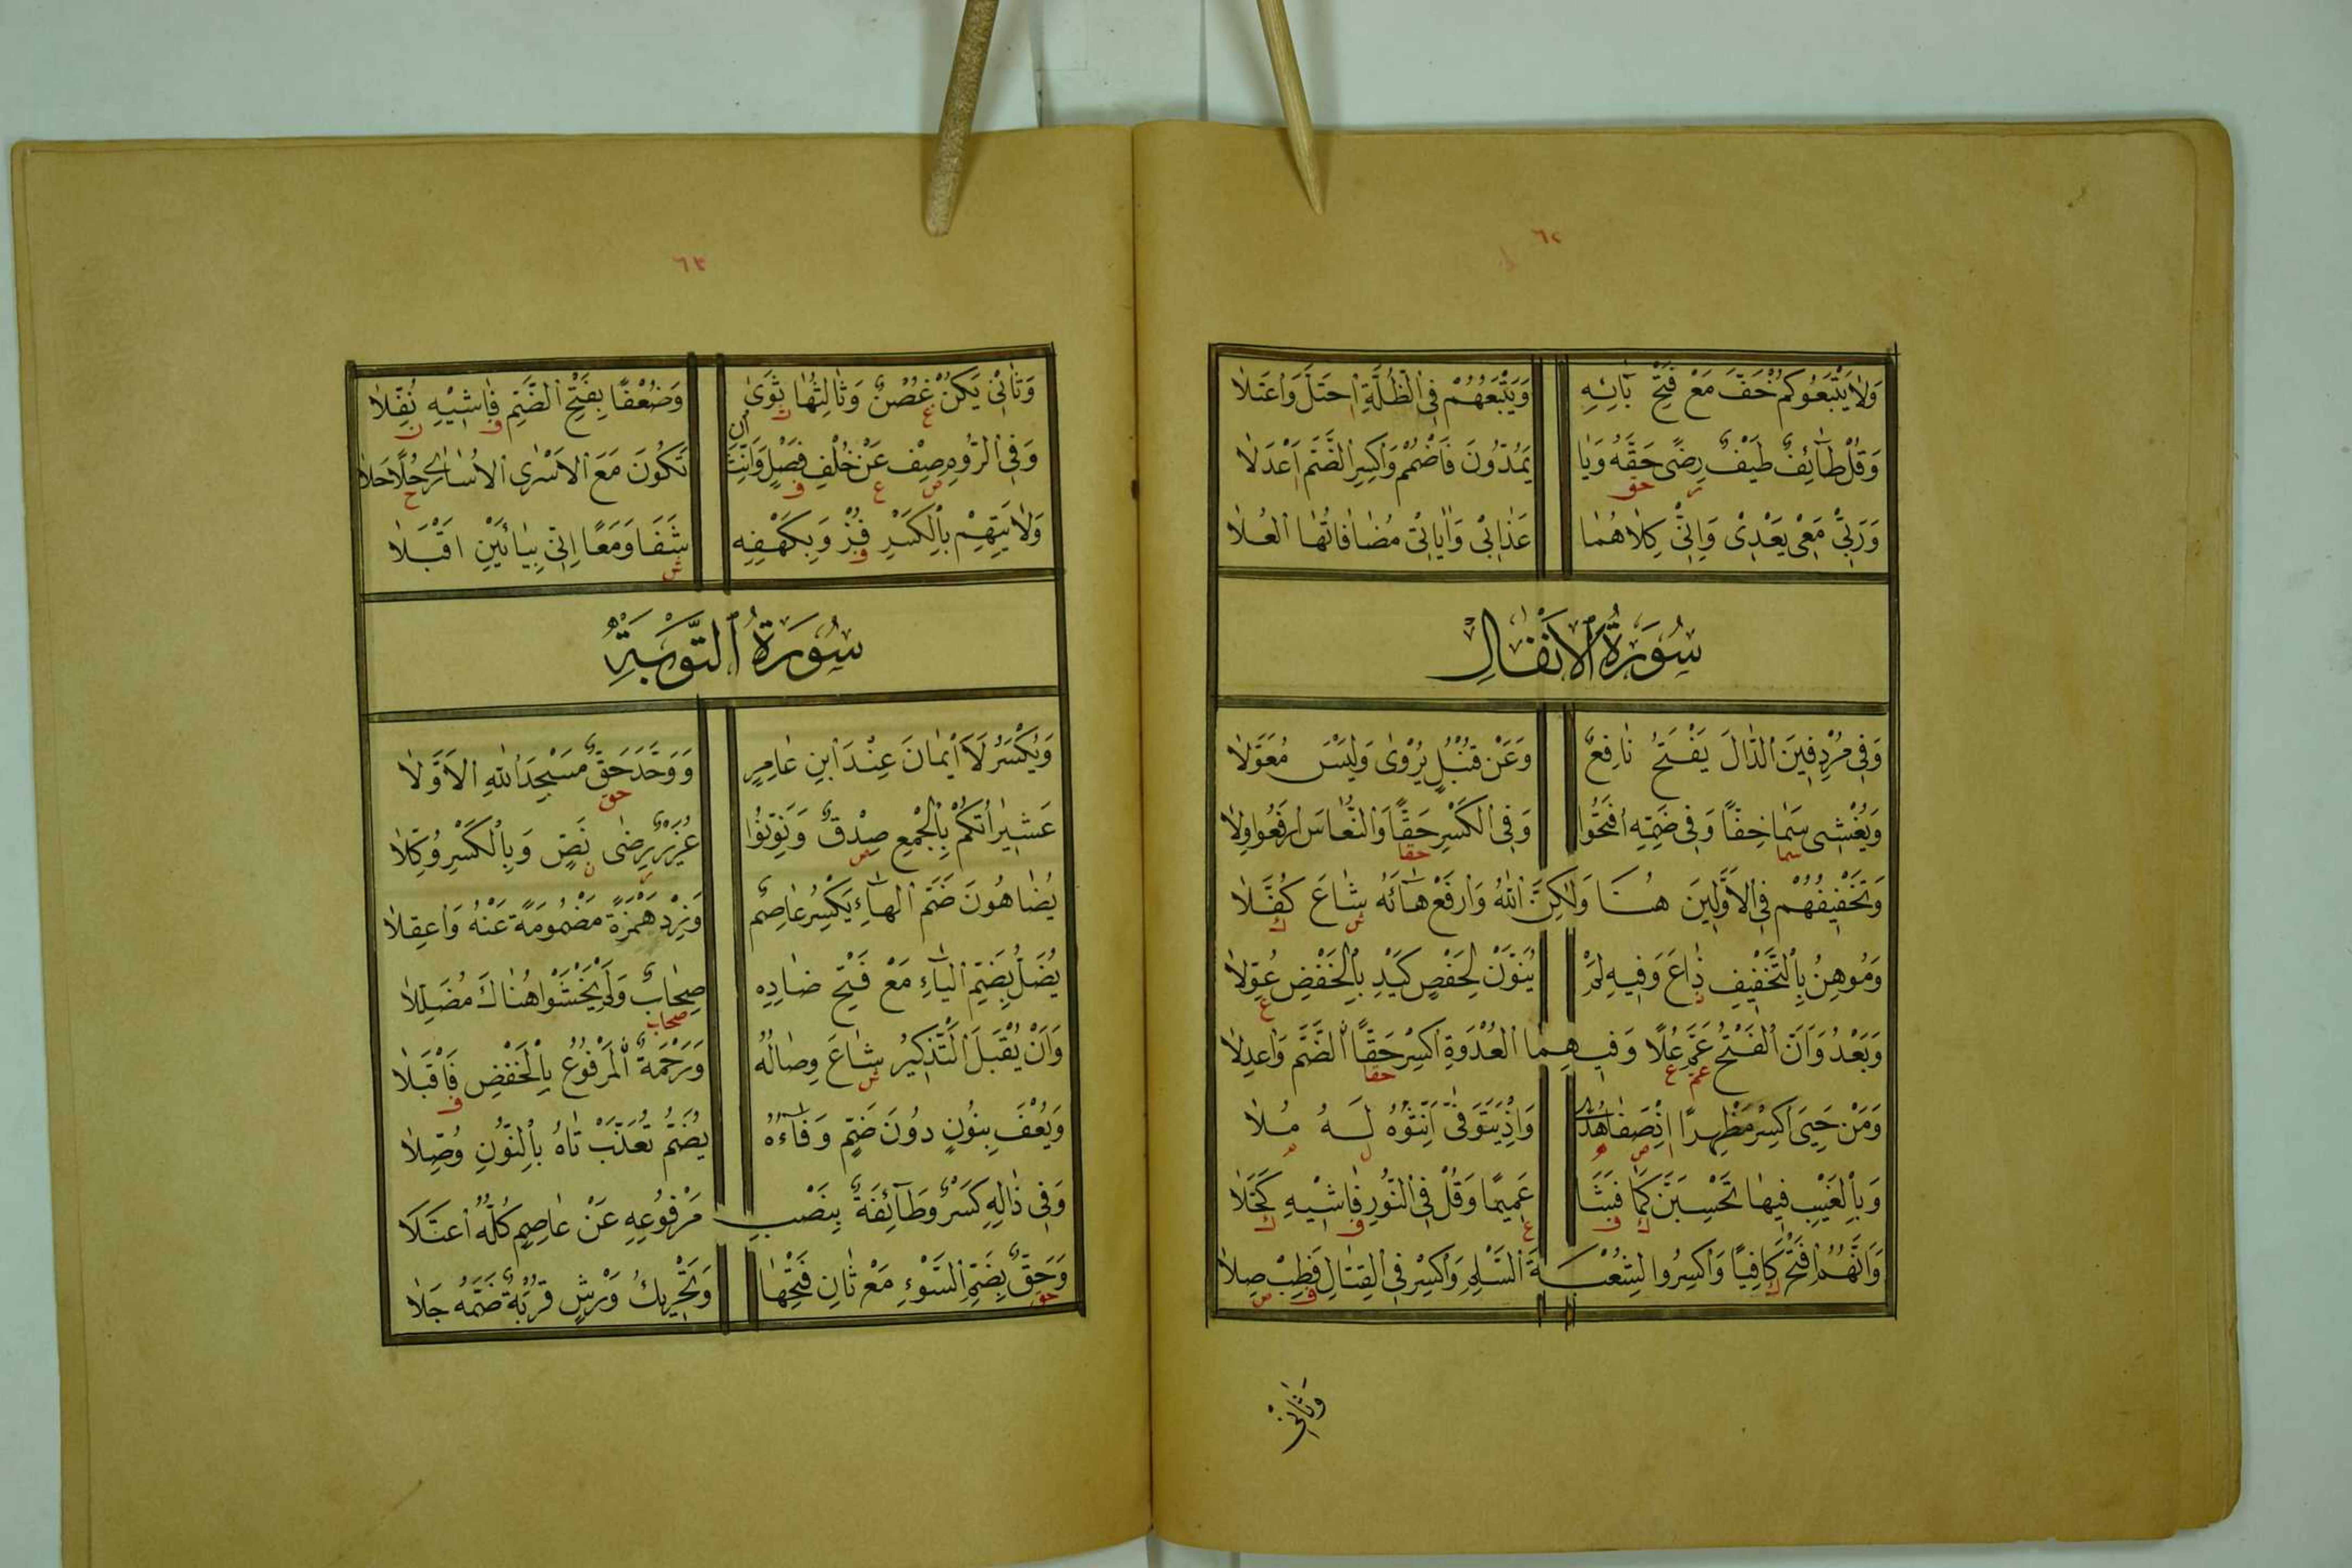 ٦٢
وَلَا يَتْبَعُوكُمْ خَفَّ مَعَ فَتْحِ بَائِهِ وَيَتْبَعُهُمْ فِي الظُّلَّةِ احْتَلَّ وَاعْتَلَا
وَقُلْ طَائِفٌ طَيْفٌ رِضًى حَقُّهُ وَيَا يَمُدُّونَ فَاضْمُمْ وَاكْسِرِ الضَّمَّ أَعْدَلَا
وَرَبِّي مَعِي بَعْدِي وَإِنِّي كِلَاهُمَا عَذَابِي وَآيَاتِي مُضَافَاتُهَا الْعُلَا
سُورَةُ الْأَنْفَالِ
وَفِي مُرْدِفِينَ الدَّالَ يَفْتَحُ نَافِعٌ وَعَنْ قُنْبُلٍ يُرْوَى وَلَيْسَ مُعَوَّلَا
وَيُغْشِي سَمَا خِفًّا وَفِي ضَمِّهِ افْتَحُوا وَفِي الْكَسْرِ حَقًّا وَالنُّعَاسَ ارْفَعُوا وِلَا
وَتَخْفِيفُهُمْ فِي الْأَوَّلِينَ هُنَا وَلَكِنَّ اللَّهُ وَارْفَعْ هَاءَهُ شَاعَ كُفَّلَا
وَمُوهِنُ بِالتَّخْفِيفِ ذَاعَ وَفِيهِ لَمْ يُنَوَّنْ لِحَفْصٍ كَيْدِ بِالْخَفْضِ عُوِّلَا
وَبَعْدُ وَأَنَّ الْفَتْحُ عَمَّ عُلًا وَفِيهِمَا الْعُدْوَةِ اكْسِرْ حَقًّا الضَّمَّ وَاعْدِلَا
وَمَنْ حَيِيَ اكْسِرْ مُظْهِرًا إِذْ صَفَا هُدًى وَإِذْ يَتَوَفَّى أَنِّثُوهُ لَهُ مُلَا
وَبِالْغَيْبِ فِيهَا تَحْسِبَنَّ كَمَا فَشَا عَمِيمًا وَقُلْ فِي النُّورِ فَاشِيهِ كَحَّلَا
وَأَنَّهُمُ افْتَحْ كَافِيًا وَاكْسِرُوا لِشُعْبَةَ السَّلْمِ وَاكْسِرْ فِي الْقِتَالِ فَطِبْ صِلَا
وَثَانِي
٦٣
وَثَانِي يَكُنْ غُصْنٌ وَثَالِثُهَا ثَوَى وَضُعْفًا بِفَتْحِ الضَّمِّ فَاشِيهِ نُفِّلَا
وَفِي الرُّومِ صِفْ عَنْ خُلْفِ فَصْلٍ وَأَنِّثْ أَنْ تَكُونَ مَعَ الْأَسْرَى الْأُسَارَى حُلًا حَلَا
وَلَايَتِهِمْ بِالْكَسْرِ فُزْ وَبِكَهْفِهِ شَفَا وَمَعًا إِنِّي بِيَائَيْنِ أَقْبَلَا
سُورَةُ التَّوْبَةِ
وَيُكْسَرُ لَا أَيْمَانَ عِنْدَ ابْنِ عَامِرٍ وَوَحَّدَ حَقٌّ مَسْجِدَ اللَّهِ الْأَوَّلَا
عَشِيرَاتُكُمْ بِالْجَمْعِ صِدْقٌ وَنَوِّنُوا عُزَيْرٌ رِضَى نَصٍّ وَبِالْكَسْرِ وُكِّلَا
يُضَاهُونَ ضَمَّ الْهَاءِ يَكْسِرُ عَاصِمٌ وَزِدْ هَمْزَةً مَضْمُومَةً عَنْهُ وَاعْقِلَا
يُضَلُّ بِضَمِّ الْيَاءِ مَعْ فَتْحِ ضَادِهِ صِحَابٌ وَلَمْ يَخْشَوْا هُنَاكَ مُضَلِّلَا
وَأَنْ يُقْبَلَ التَّذْكِيرُ شَاعَ وِصَالُهُ وَرَحْمَةٌ الْمَرْفُوعُ بِالْخَفْضِ فَاقْبَلَا
وَيُعْفَ بِنُونٍ دُونَ ضَمٍّ وَفَاءُهُ يُضَمُّ تُعَذَّبْ تَاهُ بِالنُّونِ وُصِّلَا
وَفِي ذَالِهِ كَسْرٌ وَطَائِفَةٌ بِنَصْبِ مَرْفُوعِهِ عَنْ عَاصِمٍ كُلُّهُ اعْتَلَا
وَحَقٌّ بِضَمِّ السَّوْءِ مَعْ ثَانِ فَتْحِهَا وَتَحْرِيكُ وَرْشٍ قُرْبَةٌ ضَمُّهُ جَلَا